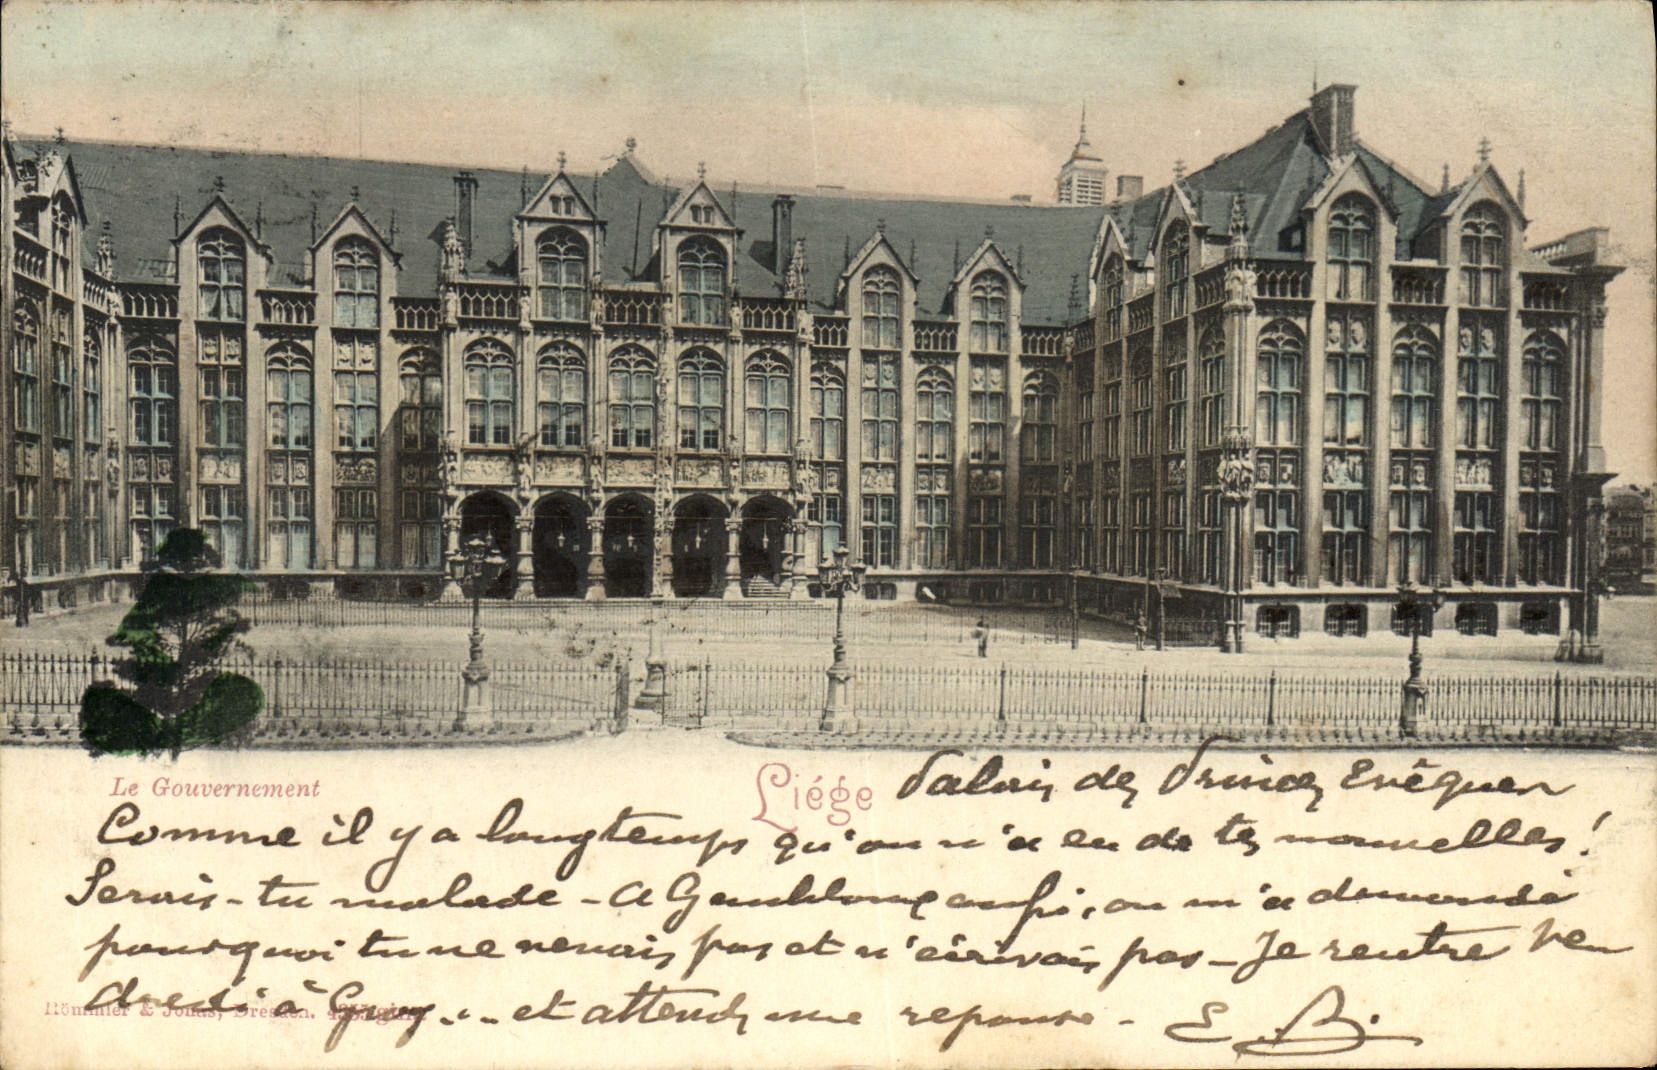 Le Gouvernement
Liége Palais des Princes Evêques
Comme il y a longtemps qu'on n'a eu de tes nouvelles!
Serais-tu malade - A Gembloux aussi, on m'a demandé
pourquoi tu ne venais pas et n'écrivais pas - Je rentre Ven
dredi à .. et attends une reponse - E. B.
Römmler & Jonas, Dresden.